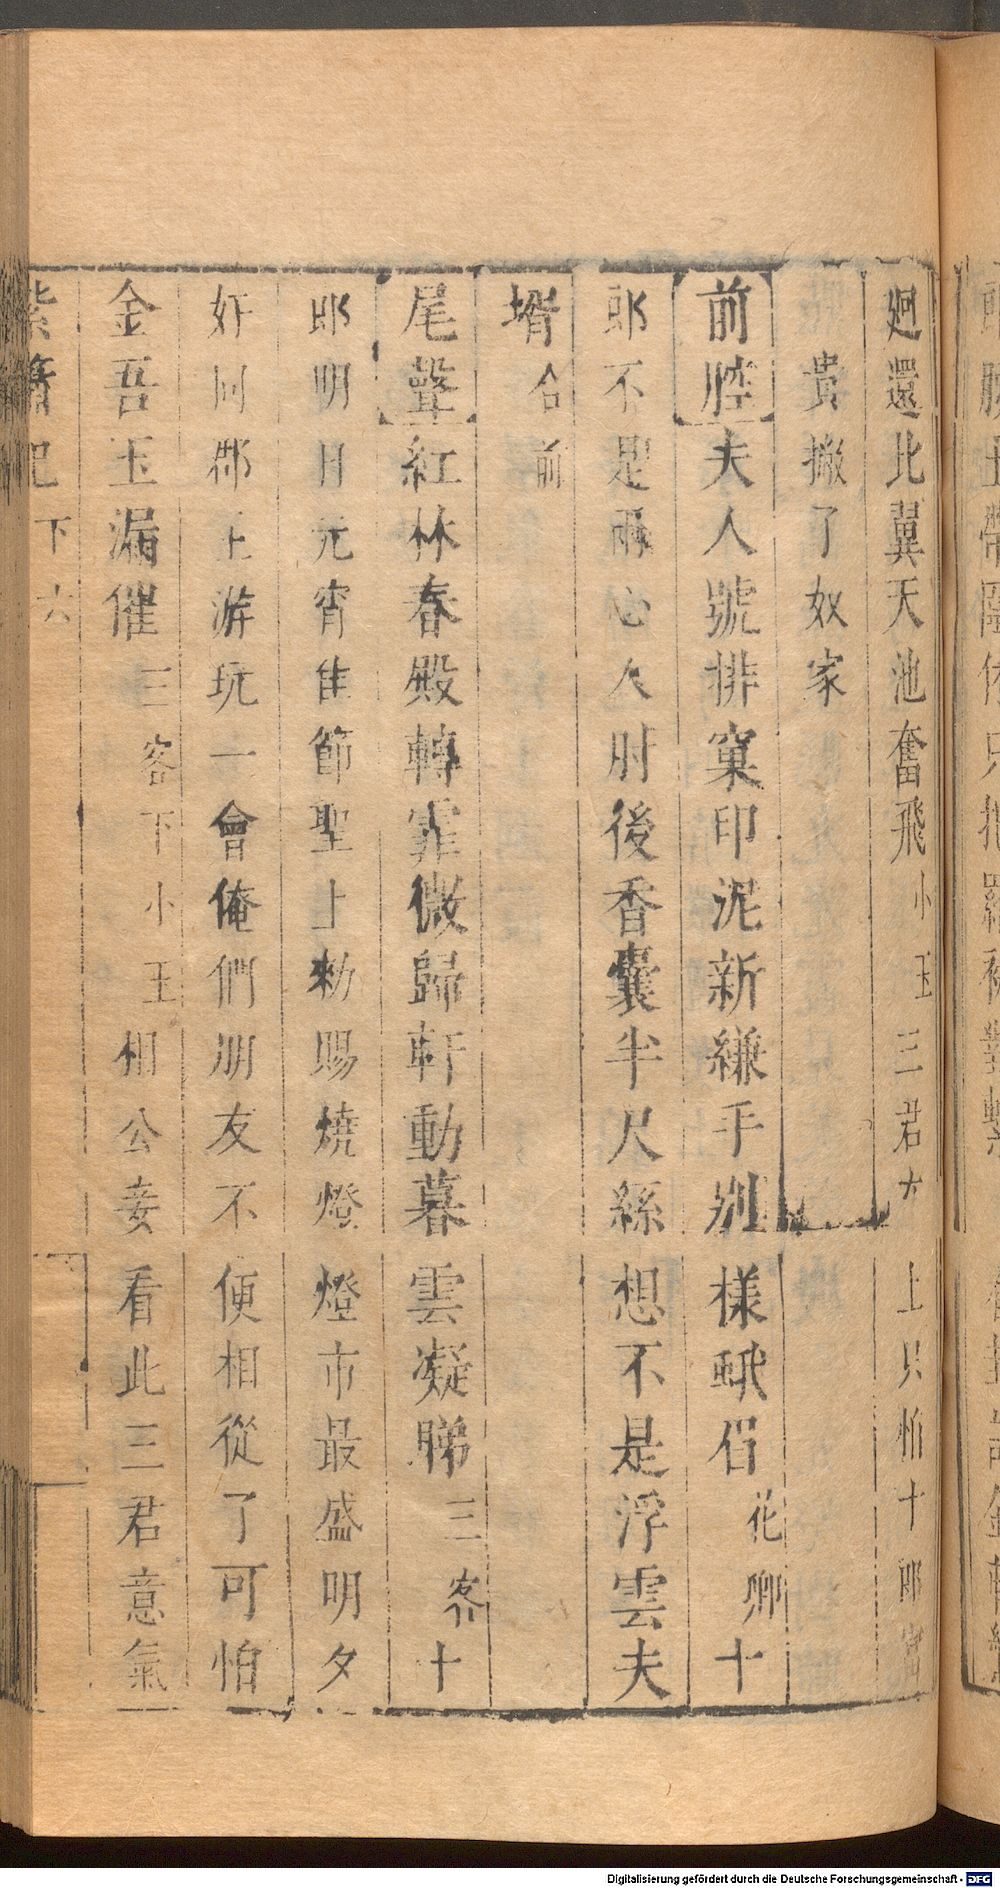 廻還比翼天池奮飛小玉三君六上只怕十郎富
貴撇了奴家
前腔夫人號排窠印泥新縑手別樣峨侶花卿十
郎不是兩心人肘後香囊半尺絲想不是浮雲夫
壻合前
尾聲紅林春殿轉霏微歸軒動暮雲凝睇三客十
郎明日元宵佳節聖上勑賜燒燈燈市最盛明夕
好同郡主游玩一會俺們朋友不便相從了可怕
金吾玉漏催三客下小玉相公妾看此三君意氣
紫簫記 下 六
Digitalisierung gefördert durch die Deutsche Forschungsgemeinschaft - DFG